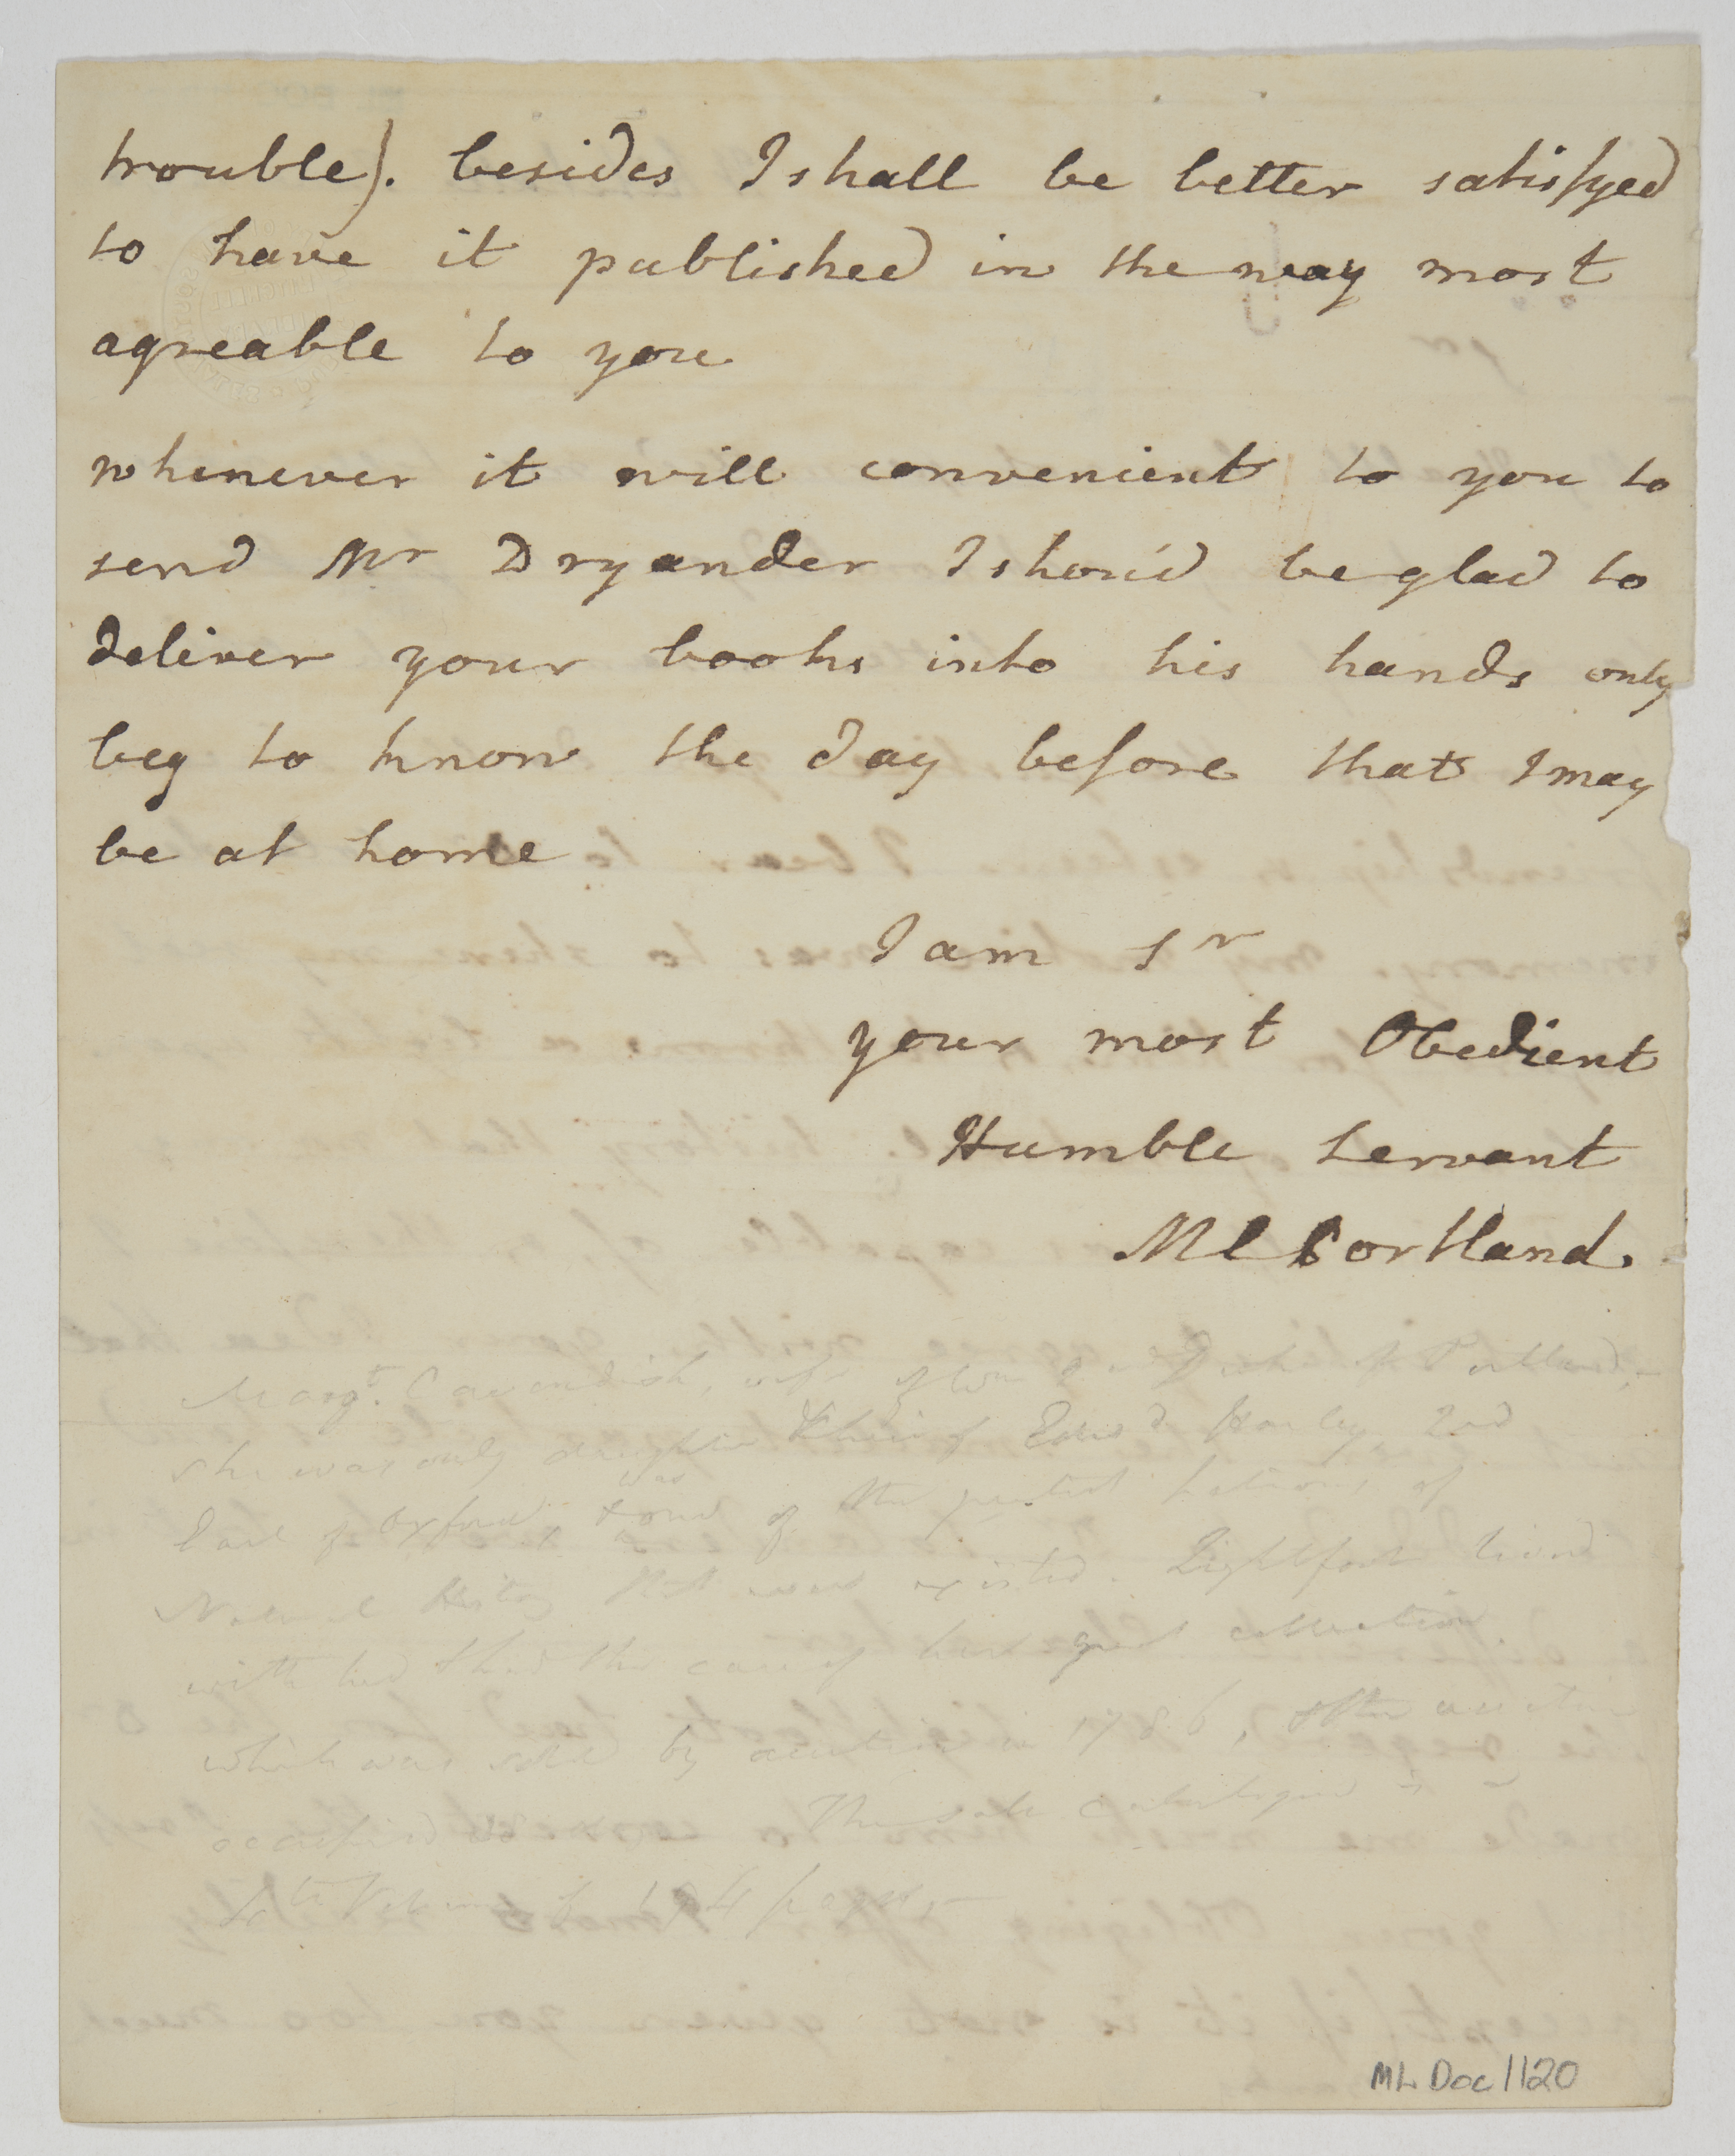 trouble). besides I shall be better satisfyed
to have it published in the way most
agreable to you
whenever it will convenient to you to
send Mr Dryander I shou'd be glad to
deliver your books into his hands only
beg to know the day before that I may
be at home
I am Sr
your most Obedient
Humble Servant
M C Portland.
Margt. Cavendish, wife of Wm 2nd Duke of Portland,
she was only daughter & heir of Edwd Harley 2nd
Earl of Oxford, & was one of the patrons of
Natural History that ever existed. Lightfoot lived
with her & had the care of her great collection
which was sold by auction in 1786, & the auction
occupied The sale catalogue is
4to Volume of 194 pages.
ML Doc 1120